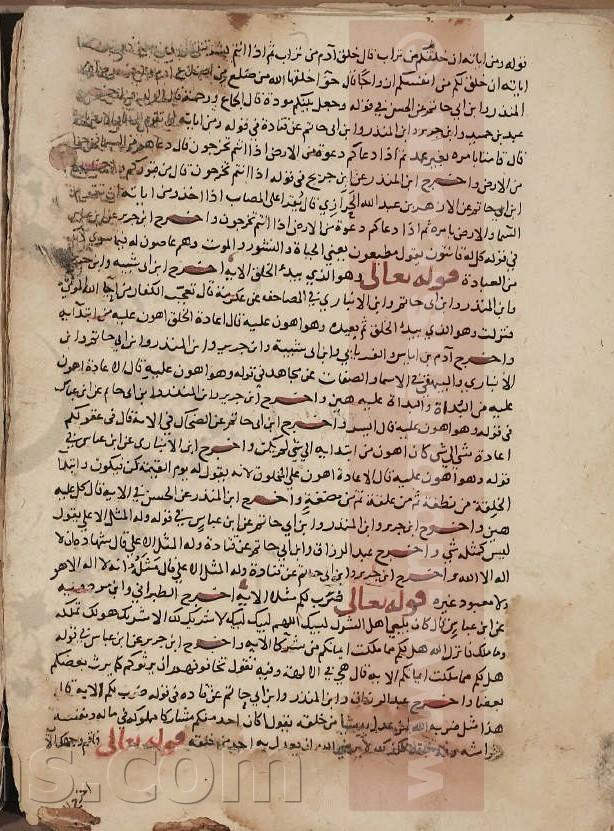 قوله ومن اياته ان خلقكم من تراب قال خلق آدم من تراب ثم اذا انتم بشر
اياته ان خلق لكم من انفسكم ازواجا قال حوا خلقها الله من ضلع من اضلاع آدم
المنذر وابن ابي حاتم عن الحسن في قوله وجعل بينكم مودة قال الجماع ورحمة قال
عبد بن حميد وابن جرير وابن المنذر وابن ابي حاتم عن قتادة في قوله ومن اياته ان تقوم
قال قامتا بامره بغير عمد ثم اذا دعاكم دعوة من الارض اذا انتم تخرجون قال دعاهم من السماء
من الارض واخرج ابن المنذر عن ابن جريج في قوله اذا انتم تخرجون قال من قبوركم
ابن ابي حاتم عن الازهر بن عبد الله الحرازي قال يقرا على المصاب اذا اخذ ومن اياته ان تقوم
السما والارض بامره ثم اذا دعاكم دعوة من الارض اذا انتم تخرجون واخرج ابن جرير عن ابن عباس
في قوله كل له قانتون يقول مطيعون يعني الحياة والنشور والموت وهم عاصون له فيما سوى ذلك
من العبادة قوله تعالى وهو الذي يبدؤ الخلق الاية اخرج ابن ابي شيبة وابن جرير
وابن المنذر وابن ابي حاتم وابن الانباري في المصاحف عن عكرمة قال تعجب الكفار من احيا الله الموتى
فنزلت وهو الذي يبدؤ الخلق ثم يعيده وهو اهون عليه قال اعادة الخلق اهون عليه من ابتدايه
واخرج آدم بن اياس والفريابي وابن ابي شيبة وابن جرير وابن المنذر وابن ابي حاتم وابن
الانباري والبيهقي في الاسما والصفات عن مجاهد في قوله وهو اهون عليه قال الاعادة اهون
عليه من البداة والبداة عليه هين واخرج ابن جرير وابن المنذر وابن ابي حاتم عن ابن عباس
في قوله وهو اهون عليه قال ايسر واخرج ابن ابي حاتم عن الضحاك في الاية قال في عقولكم
اعادة شي الى شي كان اهون من ابتدايه الى شي لم يكن واخرج ابن الانباري عن ابن عباس في
قوله وهو اهون عليه قال الاعادة اهون على المخلوق لانه يقول له يوم القيمة كن فيكون وابتدا
الخلقة من نطفة ثم من علقة ثم من مضغة واخرج ابن المنذر عن الحسن في الاية قال كل عليه
هين واخرج ابن جرير وابن المنذر وابن ابي حاتم عن ابن عباس في قوله وله المثل الاعلى يقول
ليس كمثله شي واخرج عبد الرزاق وابن ابي حاتم عن قتادة وله المثل الاعلى قال شهادة ان لا
اله الا الله واخرج ابن جرير وابن ابي حاتم عن قتادة وله المثل الاعلى قال مثله انه لا اله الا هو
ولا معبود غيره قوله تعالى ضرب لكم مثلا الاية اخرج الطبراني وابن مردويه
عن ابن عباس قال كان يلبي اهل الشرك لبيك اللهم لبيك لبيك لا شريك لك الا شريك هو لك تملكه
وما ملك فانزل الله هل لكم مما ملكت ايمانكم من شركا الاية واخرج ابن جرير عن ابن عباس في قوله
هل لكم مما ملكت ايمانكم الاية قال هي في الالهة وفيه يقول تخافونهم ان يرثوكم كما يرث بعضكم
بعضا واخرج عبد الرزاق وابن المنذر وابن ابي حاتم عن قتادة في قوله ضرب لكم الاية قال
هذا مثل ضربه الله لمن عدل به شيا من خلقه يقول اكان احد منكم مشاركا مملوكه في ماله ونفسه
وفراشه وزوجته فكذلك لا يرضى الله ان يعدل به احد من خلقه قوله تعالى فاقم وجهك الاية
اخرج